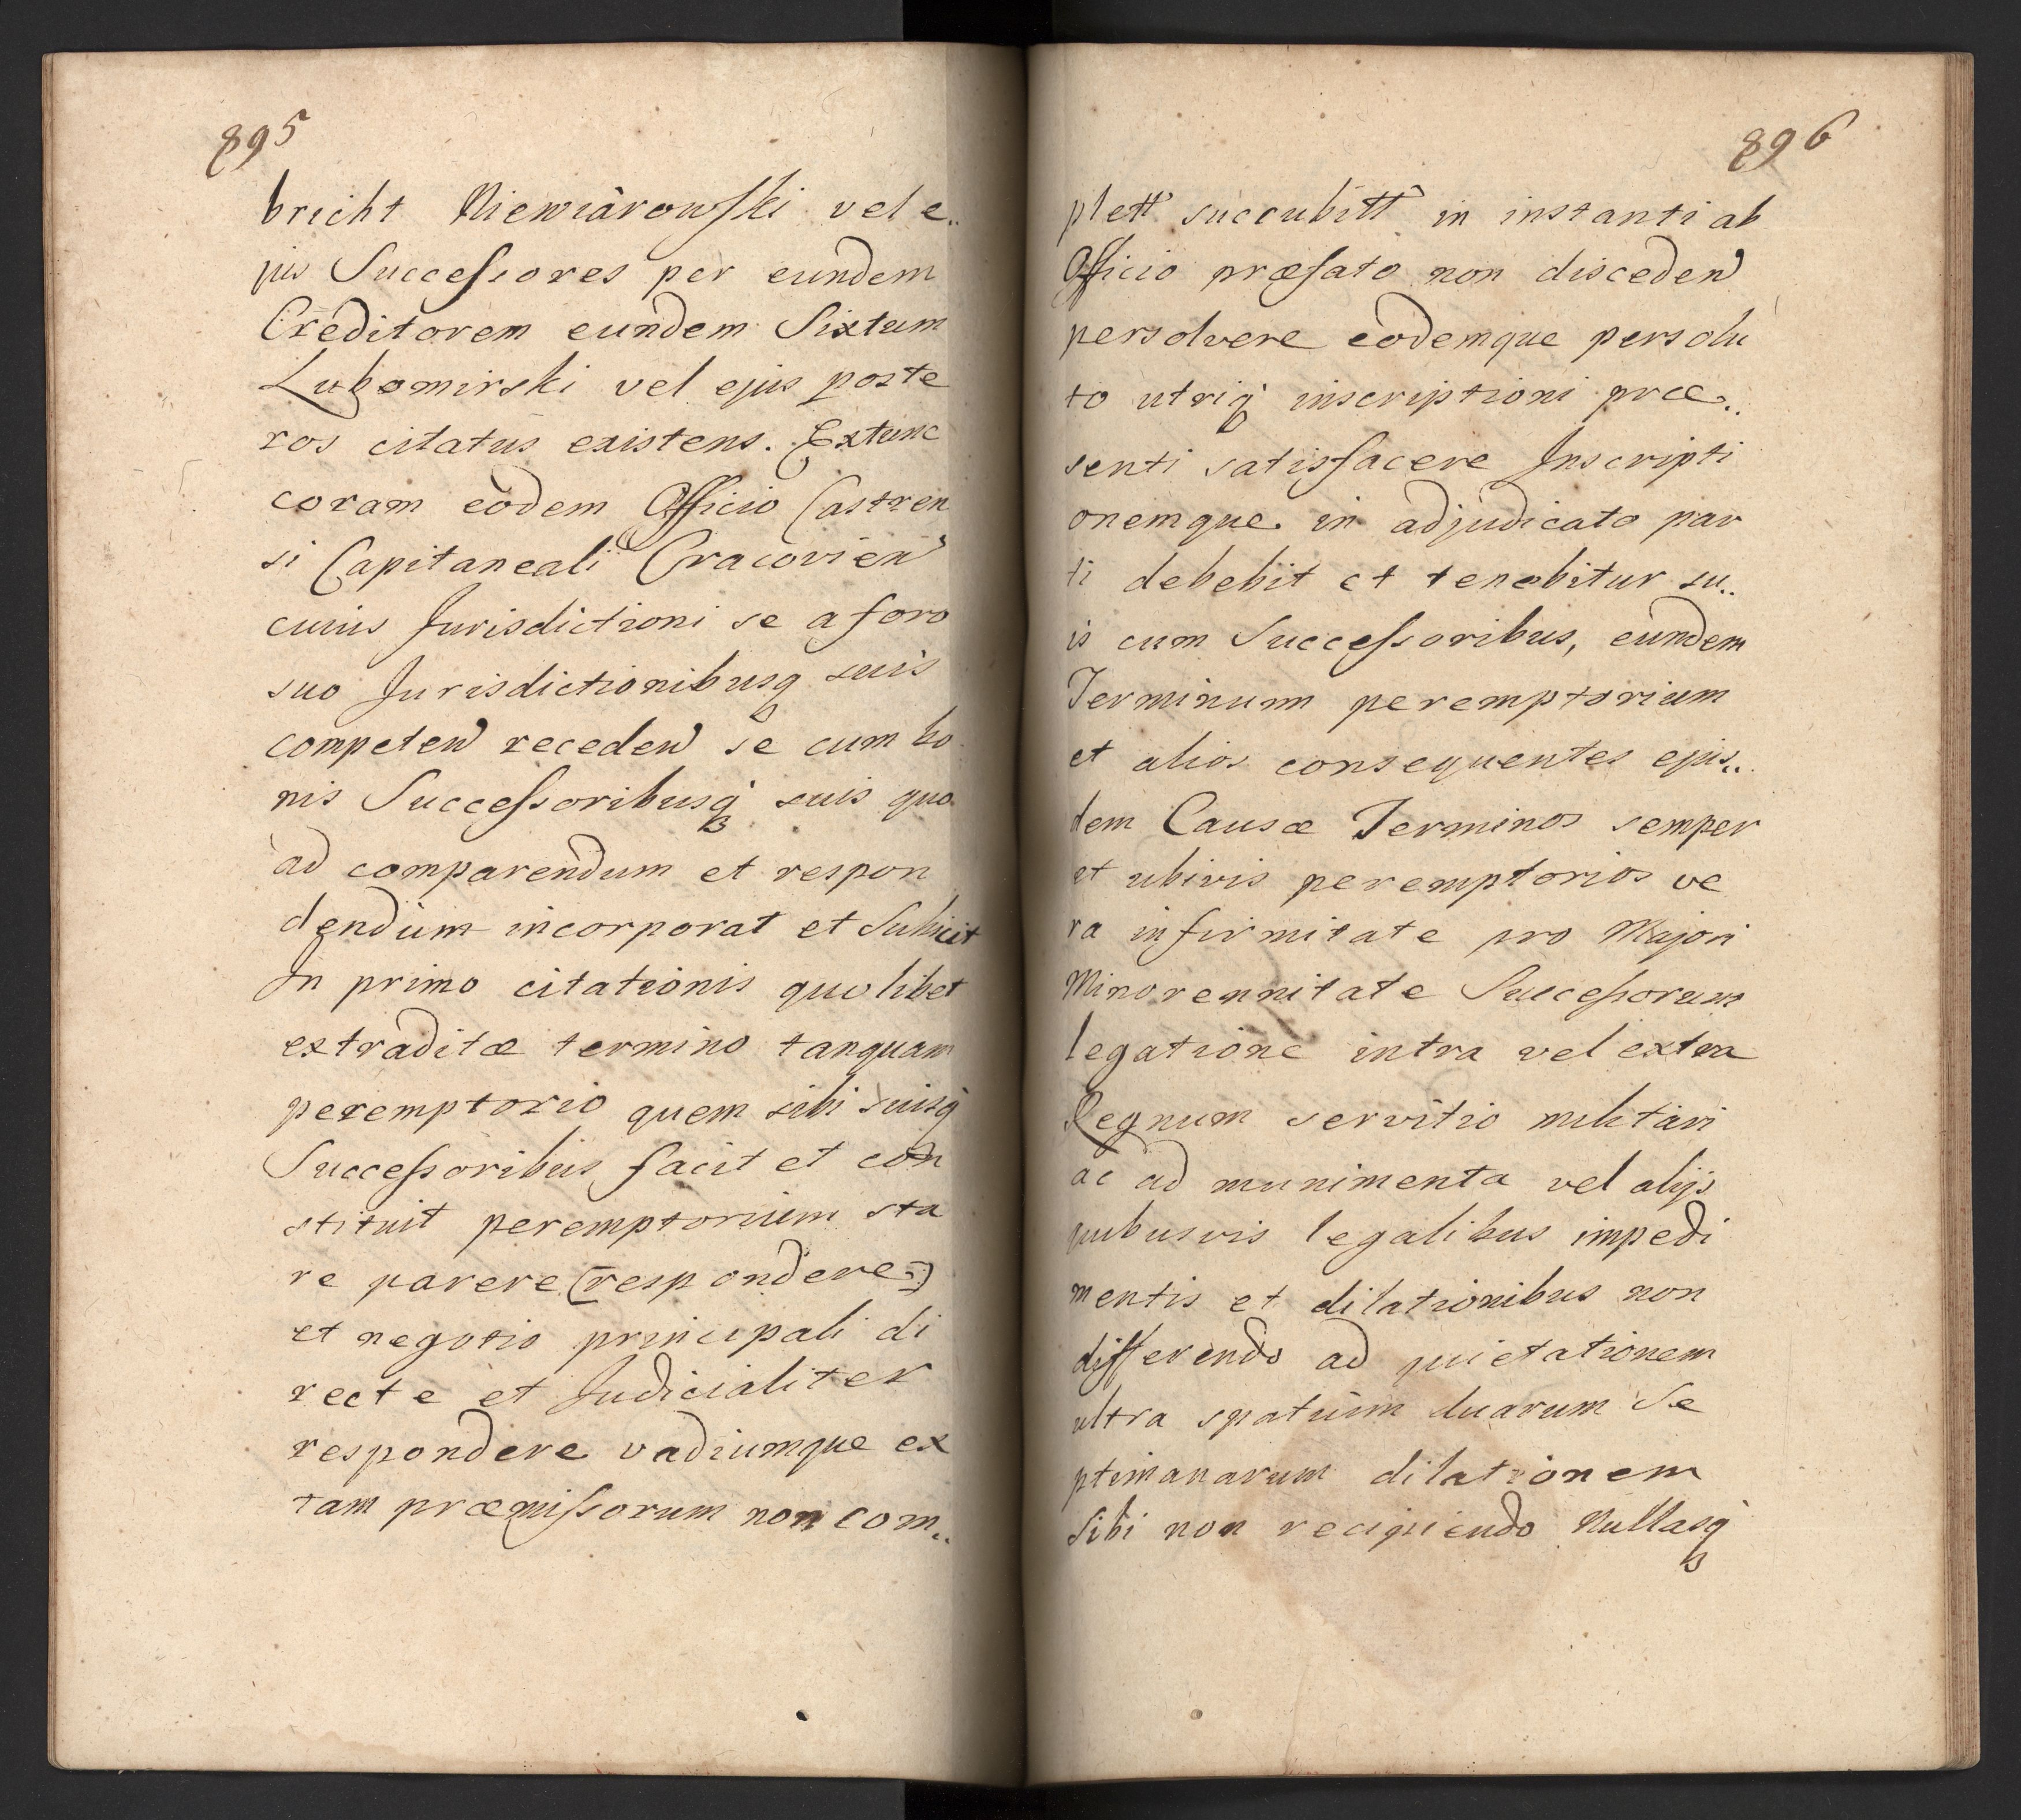 895
bricht Niewiarowski vel e„
jus Successores per eundem
Creditorem eundem Sixtum
Lubomirski vel ejus poste
ros citatus existens. Extunc
coram eodem Officio Castren
si Capitaneali Cracovien
cuius Jurisdictioni se a foro
suo Jurisdictionibusq suis
competen receden se cum bo
nis Successoribusq suis quo
ad comparendum et respon
dendum incorporat et Subicit
In primo citationis quolibet
extraditæ termino tanquam
peremptorio quem sibi suisq
Successoribus facit et con
stituit peremptorium sta
re parere (respondere)
et negotio principali di
recte et Judicialiter
respondere vadiumque ex
tam præmissorum non com„
896
plett succubitt in instanti ab
Officio præfato non disceden
persolvere eodemque persolu
to utriq inscriptioni præ„
senti satisfacere Inscripti
onemque in adjudicato par
ti debebit et tenebitur su„
is cum Successoribus, eundem
Terminum peremptorium
et alios consequentes ejus„
dem Causæ Terminos semper
et ubivis peremptorios ve
ra infirmitate pro Majori
Minorennitate Successorum
legatione intra vel extra
Regnum servitio militari
ac ad munimenta vel alijs
quibusvis legalibus impedi
mentis et dilationibus non
differendo ad quietationem
ultra spatium duarum Se
ptimanarum dilationem
Sibi non recipiendo Nullasq